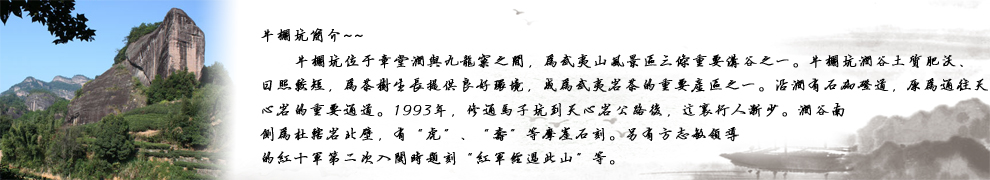 牛欄坑簡介~~
牛欄坑位于章堂澗與九龍窠之間，爲武夷山風景區三條重要溝谷之一。牛欄坑澗谷土質肥沃、
日照較短，爲茶樹生長提供良好環境，成爲武夷岩茶的重要産區之一。沿澗有石砌磴道，原爲通往天
心岩的重要通道。1993年，修通馬子坑到天心岩公路後，这裏行人漸少。澗谷南
側爲杜轄岩北壁，有“虎”、“壽”等摩崖石刻。另有方志敏領導
的紅十軍第二次入閩時題刻“紅軍經過此山”等。